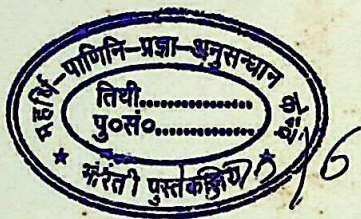 महर्षि-पाणिनि-प्रज्ञा-अनुसन्धान केन्द्र
तिथी...............
पु०सं०...............
पुस्तकालय